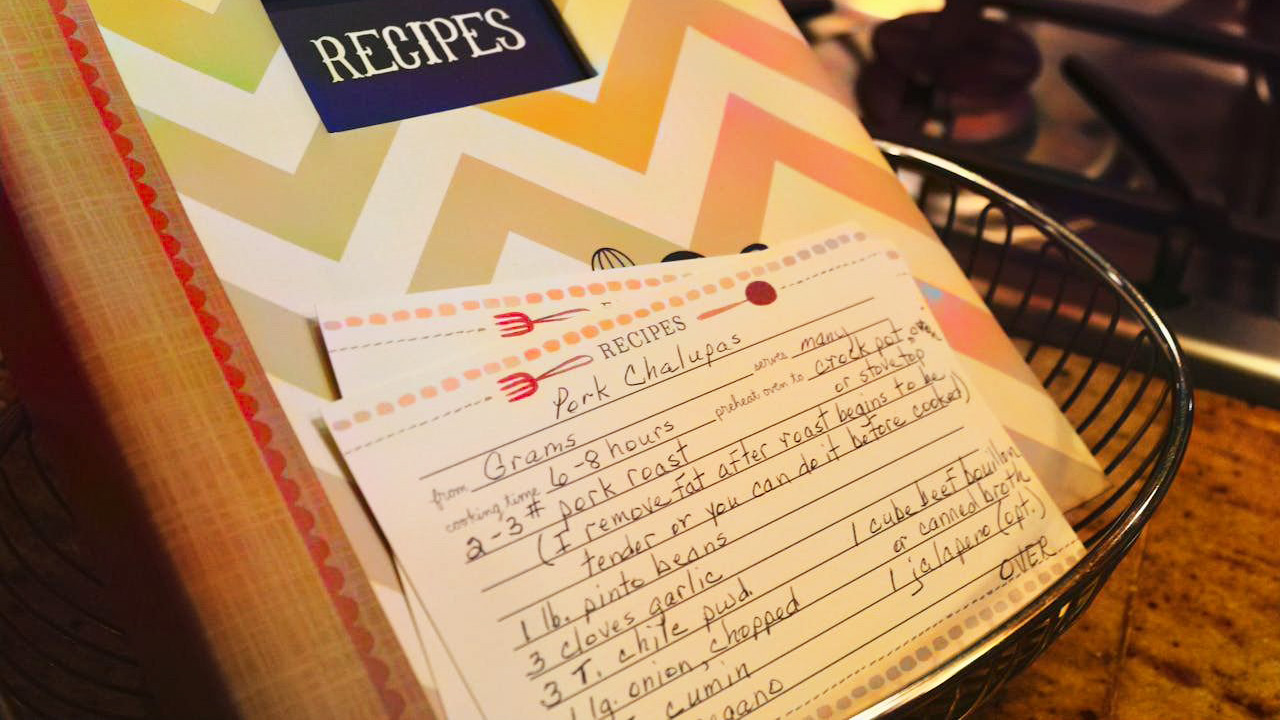 RECIPES
RECIPES
Pork Chalupas
from Grams serves many
cooking time 6-8 hours preheat oven to crock pot
or stovetop
2-3# pork roast
(I remove fat after roast begins to be
tender or you can do it before cooked)
1 lb. pinto beans
3 cloves garlic 1 cube beef bouillon
3 T. chile pwd. or canned broth
1 lg. onion, chopped 1 jalapeno (opt.)
cumin OVER